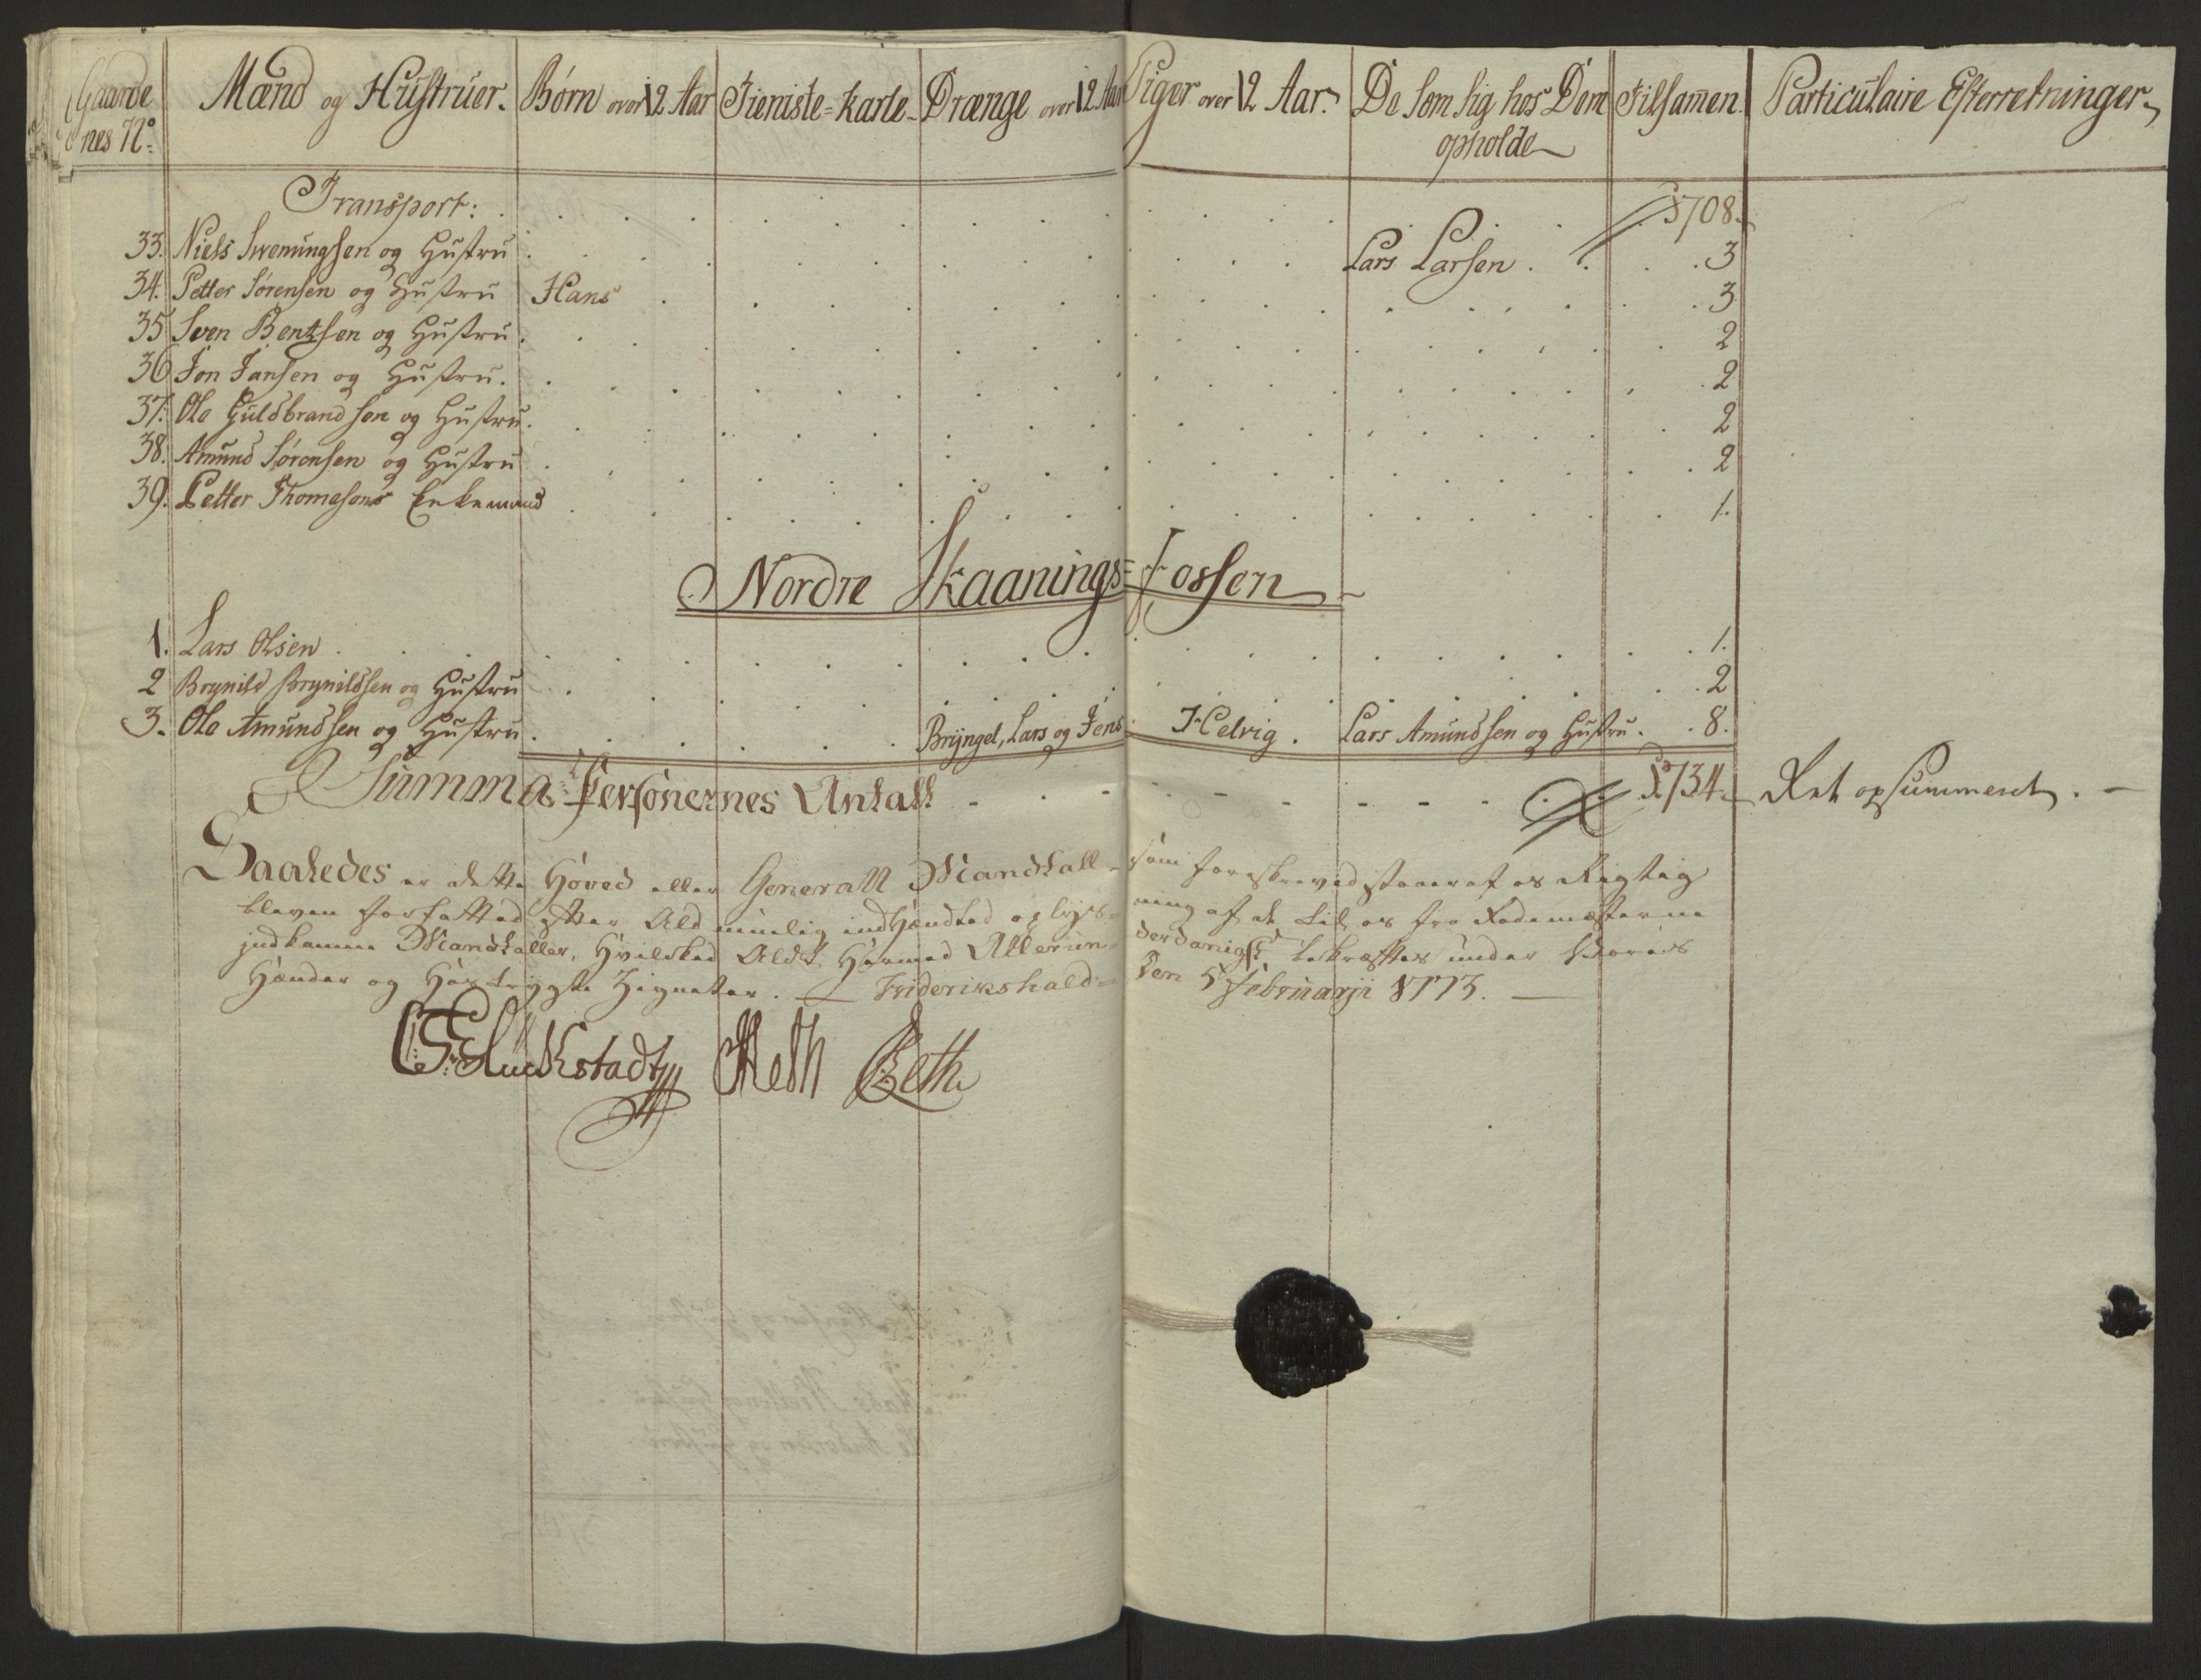 Gaarde nes No: Mænd og Hustruer. Børn over 12 Aar Tieniste=Karle Drænge over 12 Aar Piger over 12 Aar. De som sig hos Dem opholde Tilsamen. Particulaire Efterretninger
Transport: 1708.
33. Niels Swenungsen og Hustru Lars Larsen 3
34. Petter Sørensen og Hustru Hans 3
35 Sven Bentzsen og Hustru 2
36 Jon Jansen og Hustru. 2
37. Ole Guldbrandsen og Hustru. 2
38. Amund Sørensen og Hustru 2
39. Petter Thomesens Enkemand 1.
Nordre Skaanings=Fossen
1. Lars Olsen 1.
2 Brynild Brynildsen og Hustru 2
3. Ole Amundsen og Hustru Bryngel, Lars og Jens Helvig. Lars Amundsen og Hustru. 8.
Summa Personernes Antall 1734. Ret opsummeret.
Saaledes er dette Hoved eller Generall Mandtall som foreskreved staaer af os Rigtig
bleven forfatted efter Ald muelig indhændted oplys=ning af de til os fra Rodemæsterne
jndkomne Mandtaller, Hvilked Aldt Hermed Allerun=derdanigst bekræftes under Vores
Hænder og Hostrygte Zigneter. Friderikshald den 5 Februarji 1773.
Reth